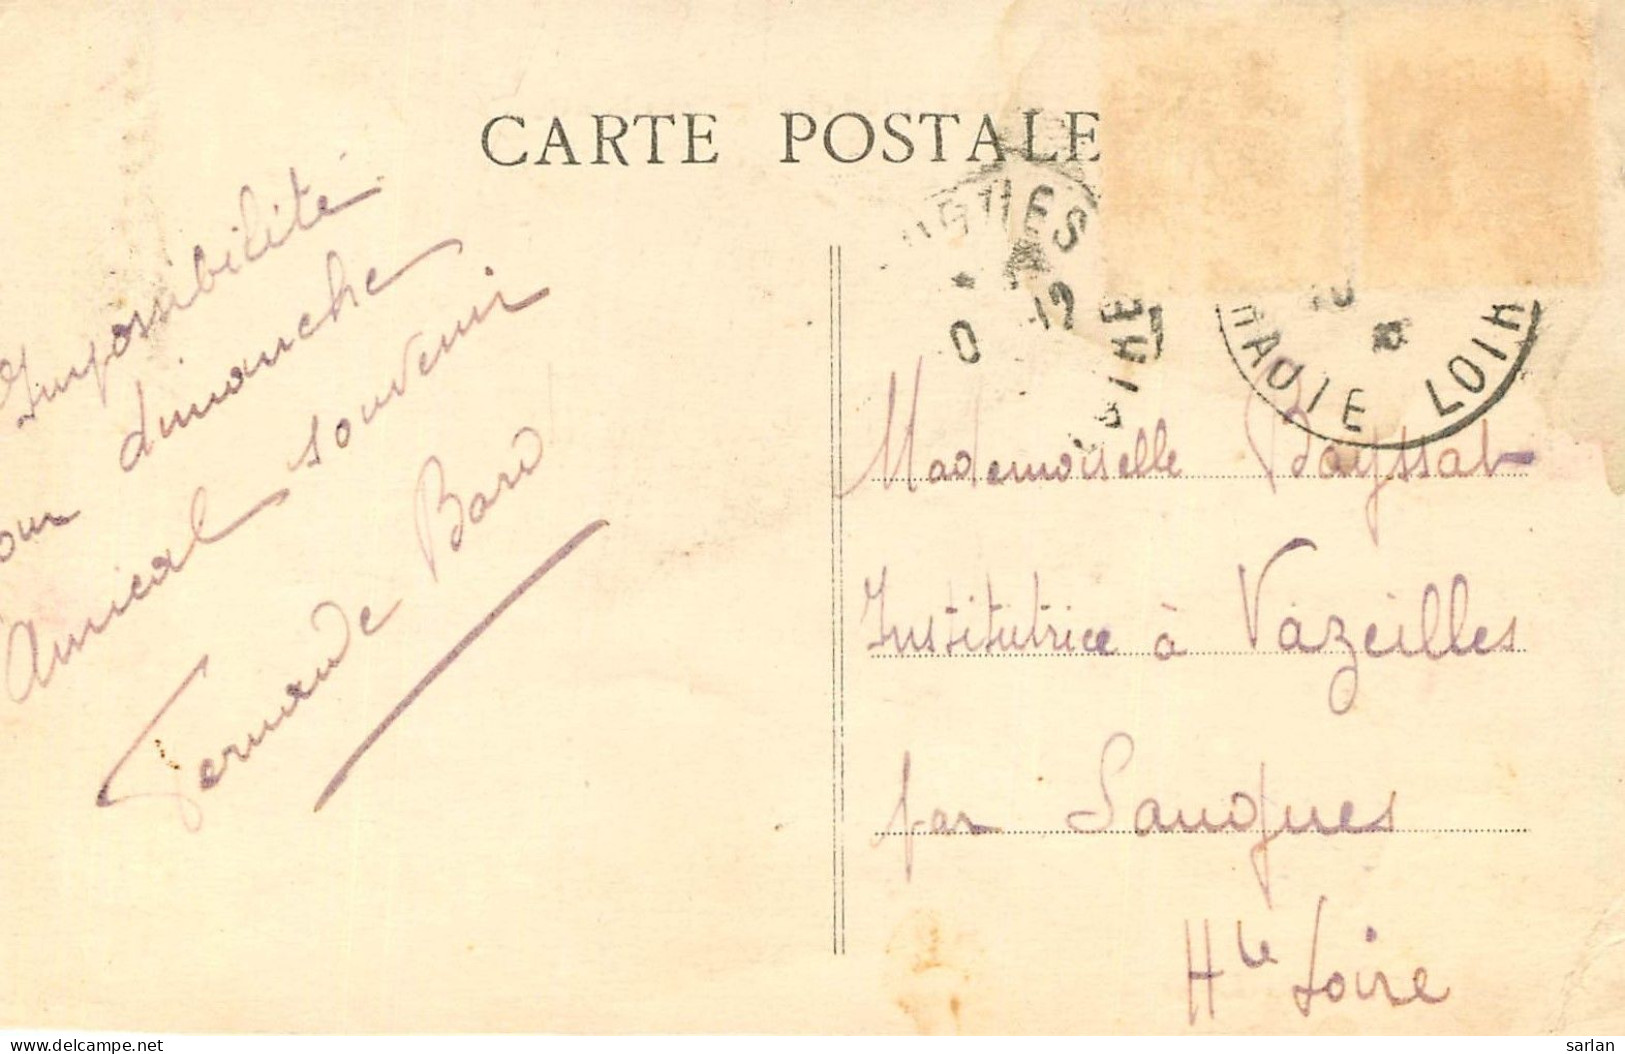 CARTE POSTALE
HAUTE LOIRE
Impossibilité
pour dimanche
Amical souvenir
Fernande Bard
Mademoiselle Bayssat
Institutrice à Vazeilles
par Saugues
Hte Loire
delcampe.net
sarlan